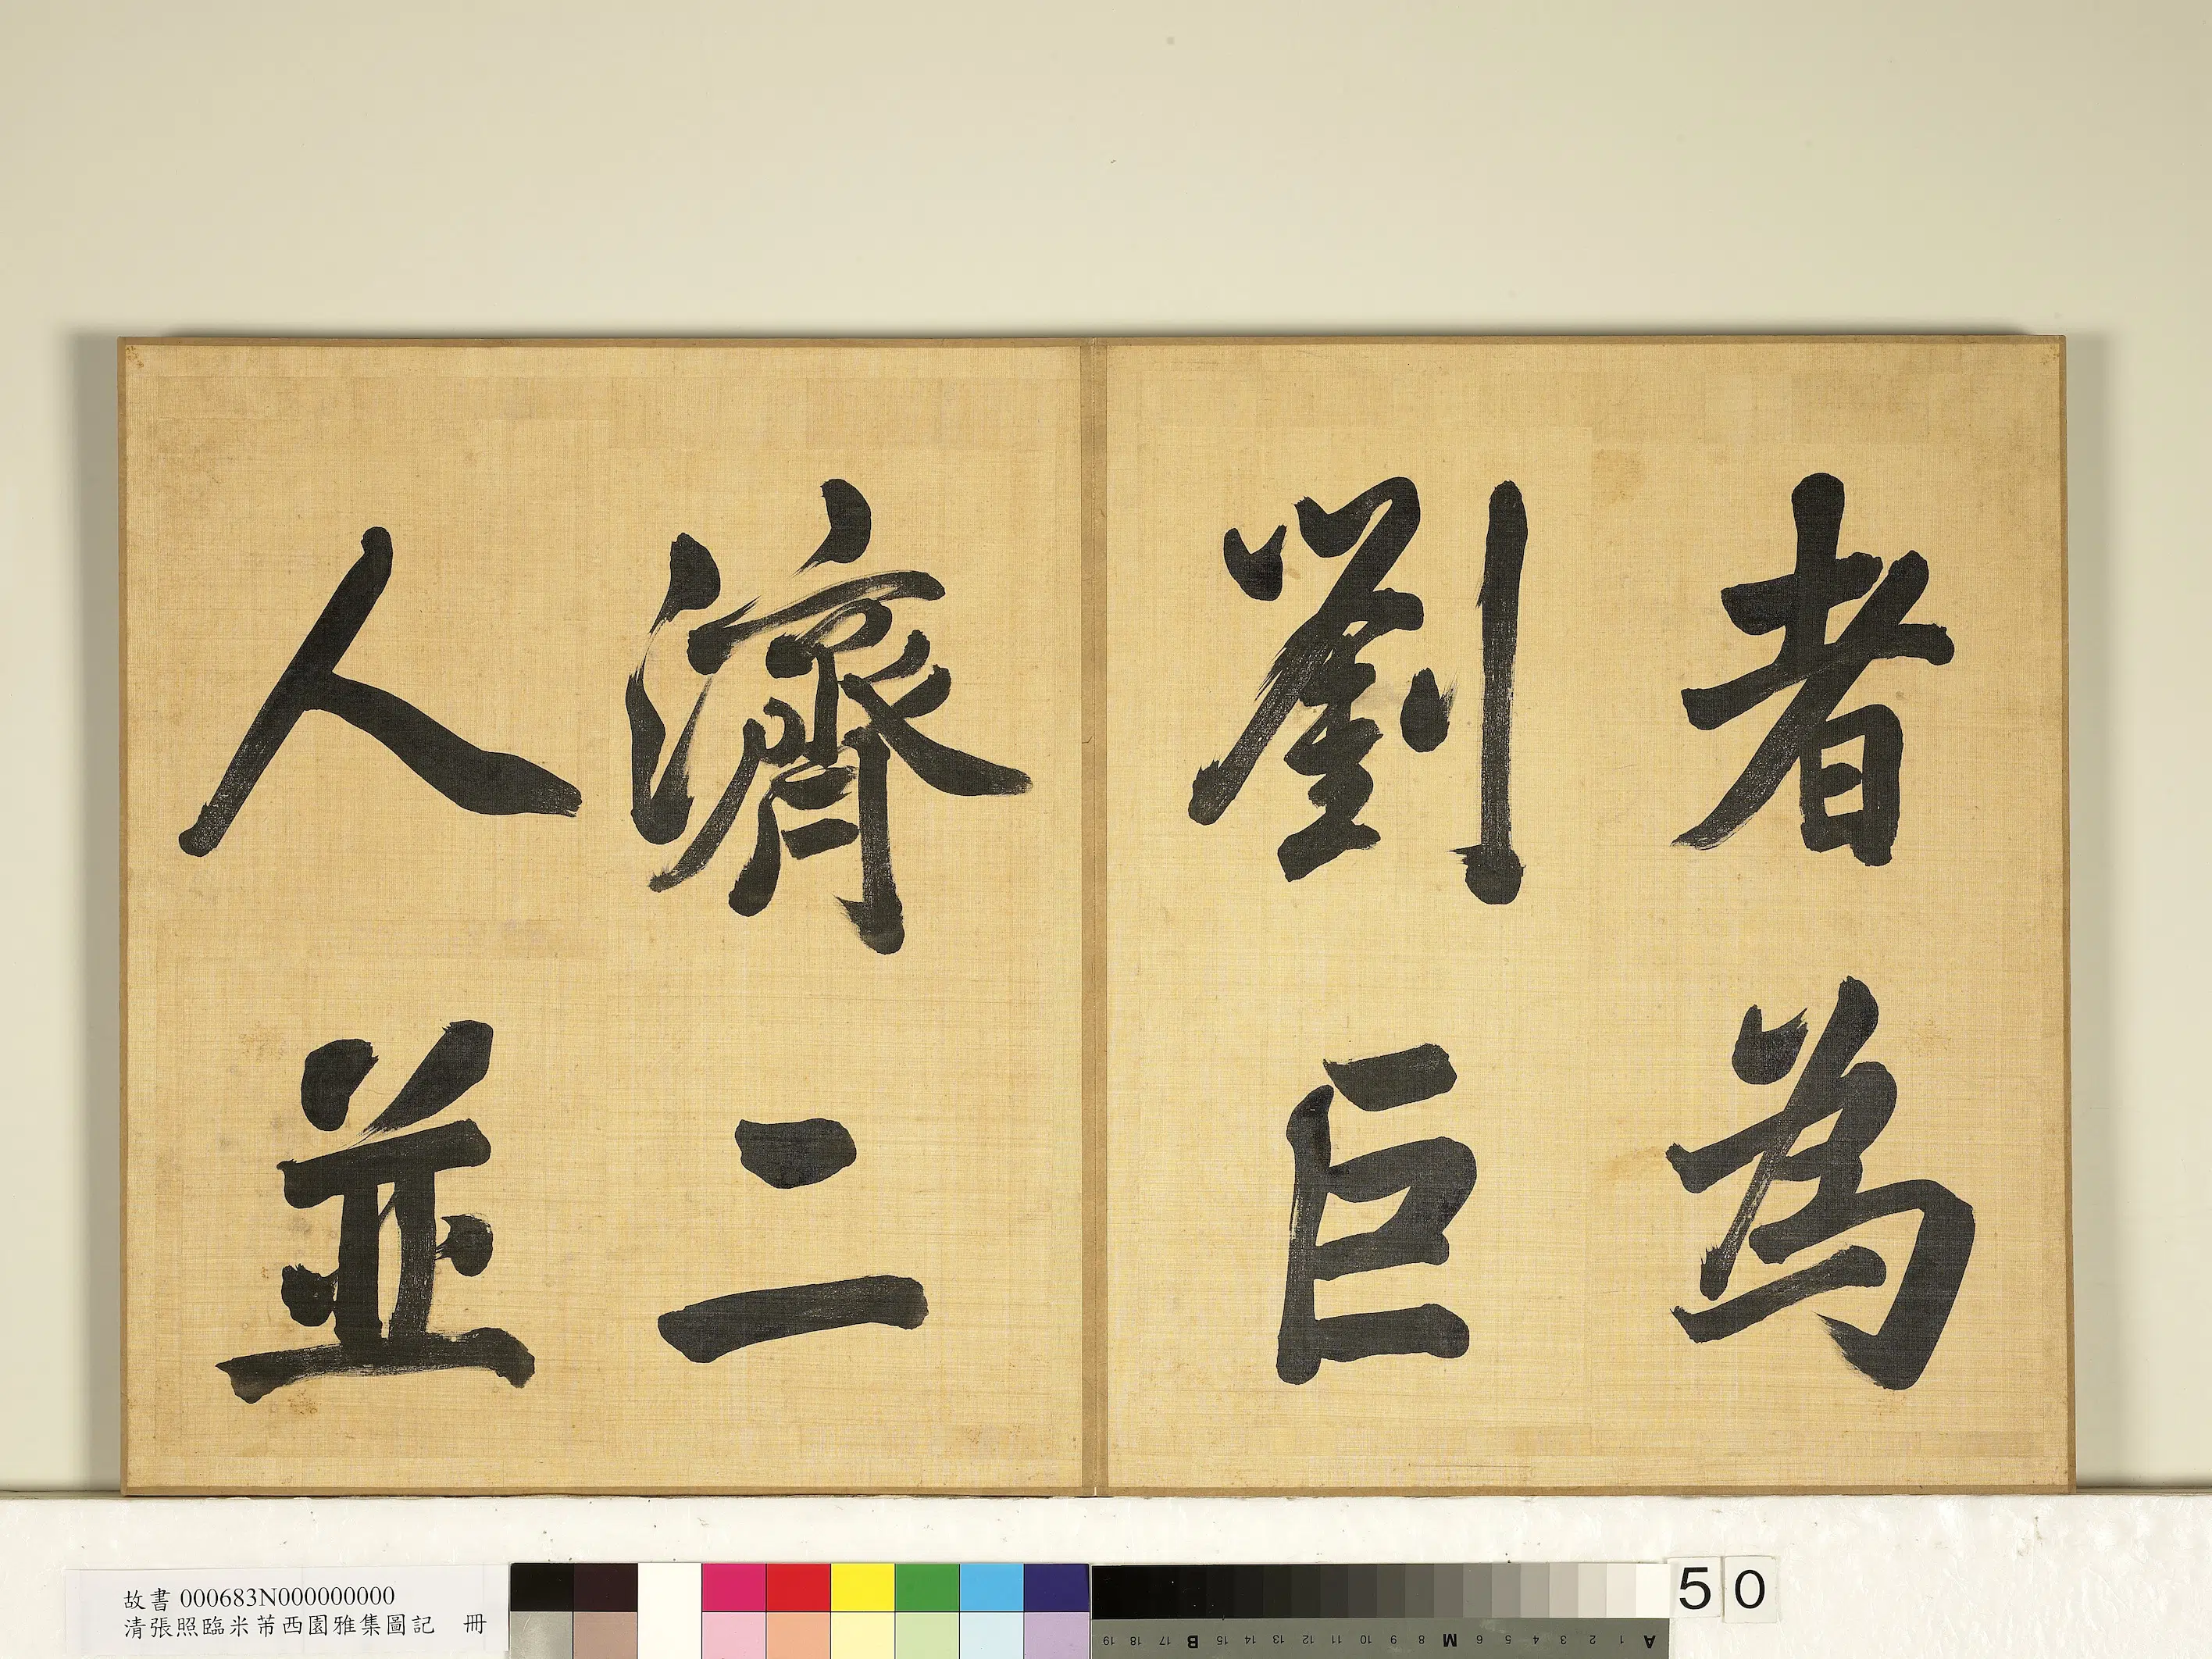 者為
劉巨
濟二
人並
故書 000683N000000000
清張照臨米芾西園雅集圖記 冊
50
A 1 2 3 4 5 6 M 8 9 10 11 12 13 14 15 B 17 18 19